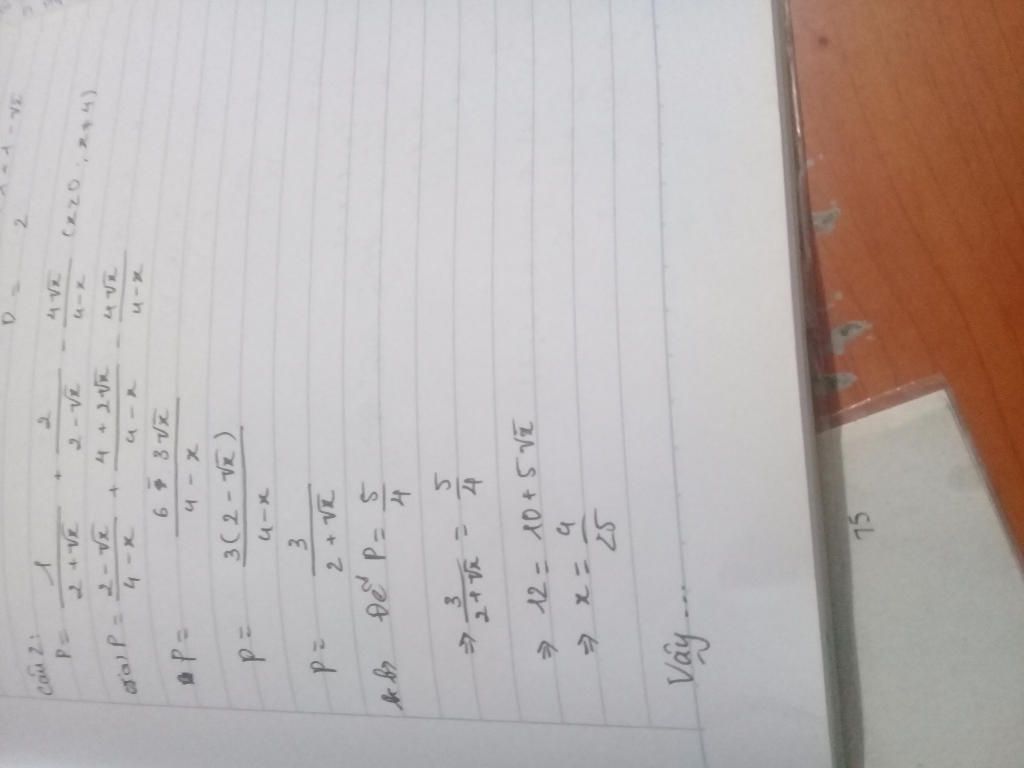 D = 2
Câu 2:
P = 1/(2+√x) + 2/(2-√x) - 4√x/(4-x) (x≥0; x≠4)
a) P = (2-√x)/(4-x) + (4+2√x)/(4-x) - 4√x/(4-x)
P = (6-3√x)/(4-x)
P = 3(2-√x)/(4-x)
P = 3/(2+√x)
b) Để P = 5/4
⇒ 3/(2+√x) = 5/4
⇒ 12 = 10+5√x
⇒ x = 4/25
Vậy ...
75